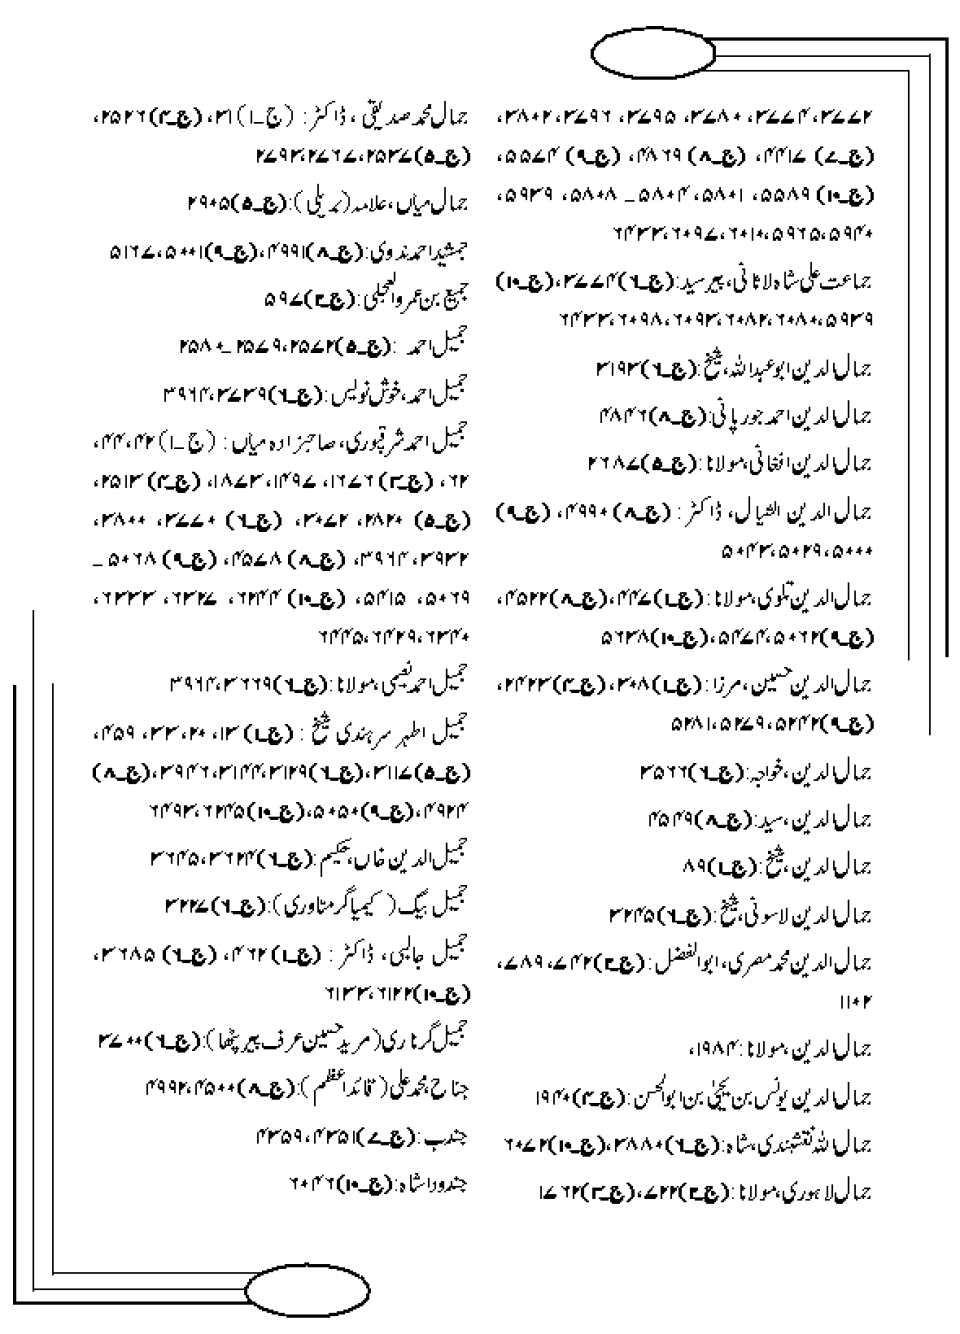 ۳۷۷۲، ۳۷۷۴، ۳۷۸۰، ۳۷۹۵، ۳۷۹۶، ۳۸۰۲،
(ج۔۷) ۴۴۱۷، (ج۔۸) ۴۸۶۹، (ج۔۹) ۵۵۷۴،
(ج۔۱۰) ۵۵۸۹، ۵۸۰۱، ۵۸۰۴ _ ۵۸۰۸، ۵۹۳۹،
۵۹۴۰، ۵۹۶۵، ۶۰۱۰، ۶۰۹۷، ۶۴۳۳
جماعت علی شاہ لاثانی، پیر سید: (ج۔۶) ۳۷۷۴، (ج۔۱۰)
۵۹۳۹، ۶۰۸۰، ۶۰۸۲، ۶۰۹۳، ۶۰۹۸، ۶۴۳۳
جمال الدین ابو عبداللہ، شیخ: (ج۔۶) ۳۱۹۳
جمال الدین احمد جورپانی: (ج۔۸) ۴۸۴۶
جمال الدین افغانی، مولانا: (ج۔۵) ۲۶۸۷
جمال الدین الشیال، ڈاکٹر: (ج۔۸) ۴۹۹۰، (ج۔۹)
۵۰۰۰، ۵۰۲۹، ۵۰۴۳
جمال الدین تلوی، مولانا: (ج۔۱) ۴۴۷، (ج۔۸) ۴۵۲۲،
(ج۔۹) ۵۰۶۲، ۵۴۷۴، (ج۔۱۰) ۵۶۳۸
جمال الدین حسین، مرزا: (ج۔۱) ۳۰۸، (ج۔۴) ۲۴۲۳،
(ج۔۹) ۵۲۴۲، ۵۲۷۹، ۵۲۸۱
جمال الدین، خواجہ: (ج۔۶) ۳۵۶۶
جمال الدین، سید: (ج۔۸) ۴۵۴۹
جمال الدین، شیخ: (ج۔۱) ۸۹
جمال الدین لاسوٹی، شیخ: (ج۔۶) ۳۲۴۵
جمال الدین محمد مصری، ابوالفضل: (ج۔۲) ۷۴۲، ۷۸۹،
۱۱۰۲
جمال الدین، مولانا: ۱۹۸۴،
جمال الدین یونس بن یحیٰی بن ابوالحسن: (ج۔۴) ۱۹۴۰
جمال اللہ نقشبندی، شاہ: (ج۔۶) ۳۸۸۰، (ج۔۱۰) ۶۰۷۲
جمال لاہوری، مولانا: (ج۔۲) ۷۲۲، (ج۔۳) ۱۷۶۲
جمال محمد صدیقی، ڈاکٹر: (ج_۱) ۳۱، (ج۔۴) ۲۵۲۶،
(ج۔۵) ۲۵۳۷، ۲۷۶۷، ۲۷۹۳
جمال میاں، علامہ (بریلی): (ج۔۵) ۲۹۰۵
جمشید احمد ندوی: (ج۔۸) ۴۹۹۱، (ج۔۹) ۵۰۰۱، ۵۱۶۷
جمیع بن عمرو العجلی: (ج۔۲) ۵۹۷
جمیل احمد: (ج۔۵) ۲۵۷۲، ۲۵۷۹_ ۲۵۸۰
جمیل احمد، خوش نویس: (ج۔۶) ۳۷۳۹، ۳۹۶۴
جمیل احمد شرقپوری، صاحبزادہ میاں: (ج_۱) ۴۲، ۴۴،
۶۲، (ج۔۳) ۱۶۷۶، ۱۴۹۷، ۱۸۷۳، (ج۔۴) ۲۵۱۳،
(ج۔۵) ۲۸۲۰، ۳۰۷۲، (ج۔۶) ۳۷۷۰، ۳۸۰۰،
۳۹۳۲، ۳۹۶۴، (ج۔۸) ۴۵۷۸، (ج۔۹) ۵۰۶۸ _
۵۰۶۹، ۵۴۱۵، (ج۔۱۰) ۶۲۴۴، ۶۳۲۷، ۶۳۳۳،
۶۳۴۰، ۶۴۲۹، ۶۴۴۵
جمیل احمد نعیمی، مولانا: (ج۔۶) ۳۶۶۹، ۳۹۶۴
جمیل اطہر سرہندی شیخ: (ج۔۱) ۱۳، ۲۰، ۳۳، ۴۵۹،
(ج۔۵) ۳۱۱۷، (ج۔۶) ۳۱۲۹، ۳۱۴۴، ۳۹۴۶، (ج۔۸)
۴۹۲۴، (ج۔۹) ۵۰۵۰، (ج۔۱۰) ۶۲۴۵، ۶۴۹۳
جمیل الدین خاں، حکیم: (ج۔۶) ۳۶۲۴، ۳۶۴۵
جمیل بیگ (کیمیاگر مناوری): (ج۔۶) ۳۲۲۷
جمیل جالبی، ڈاکٹر: (ج۔۱) ۴۶۲، (ج۔۶) ۳۶۸۵،
(ج۔۱۰) ۶۱۲۲، ۶۱۳۳
جمیل گرناری (مرید حسین عرف پیر پٹھا): (ج۔۶) ۳۷۰۰
جناح، محمد علی (قائد اعظم): (ج۔۸) ۴۵۰۰، ۴۹۹۲
جندب: (ج۔۷) ۴۳۵۱، ۴۳۵۹
جندوداشاہ: (ج۔۱۰) ۶۰۴۶